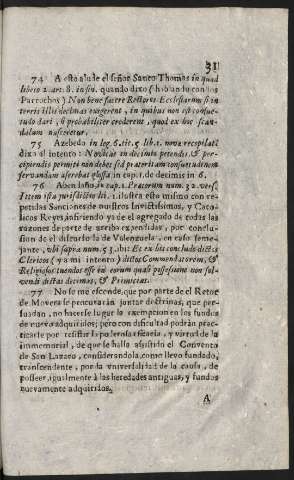 31
74 A esto alude el señor Santo Thomas in quod
libeto 2. art. 8. in fin. quando dixo (hablando con los
Parrochos) Non bene facere Rectores Ecclesiarum si in
terris illis decimas exigerent, in quibus non est consue-
tudo dari, si probabiliter crederent, quod ex hoc scan-
dalum nasceretur.
75 Azebedo in leg. 6. tit. 5 lib. 1. nova recopilat.
dixo al intento: Novitas in decimis petendis, & per-
cipiendis permitti non debet sed præteritam consuetudinem
servandam asserbas glossa in cap. 1. de decimis in 6.
76 Aben
Item ista jurisdictio lil. 1. ilustra esto mismo con re-
petidas Sanciones de nuestros Invictissimos, y Catho-
licos Reyes, infiriendo ya de el agregado de todas las
razones de parte de arriba expendidas, por conclu-
sion de el discurso la de Valenzuela, en caso seme-
jante, ubi supra num. 53. ibi: Et ex his conclude dictos
Clericos (y a mi intento) dictos Commendatorem, &
Religiosos tuendos esse in eorum quasi possessione non sol-
vendi dictas decimas, & Primicias.
77 No se me esconde, que por parte de el Retor
de Movera se procurarán juntar doctrinas, que per-
suadan, no hacerse lugar la exempcion en los fundos
de nuevo adquiridos; pero con dificultad podrán prac-
ticarse por resistir la poderosa eficacia, y virtud de la
immemorial, de que se halla asistido el Convento
de San Lazaro, considerandola como llevo fundado,
transcendente, por la universalidad de la causa, de
posseer igualmente à las heredades antiguas, y fundos
nuevamente adquiridos.
A